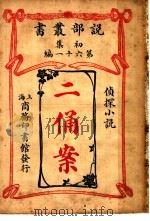 説部叢書
初集
第六十一編
偵探小説
二俑案
上海
商務印書館發行